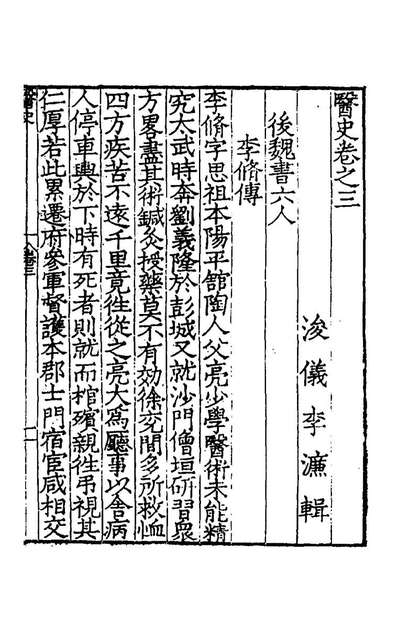 醫史卷之三
浚儀李濂輯
後魏書六人
李脩傳
李脩字思祖本陽平舘陶人父亮少學醫術未能精
究太武時奔劉義隆於彭城又就沙門僧垣研習衆
方畧盡其術鍼灸授藥莫不有効徐兖間多所救恤
四方疾苦不遠千里竟徃從之亮大為廳事以舎病
人停車輿於下時有死者則就而棺殯親徃弔視其
仁厚若此累遷府參軍督護本郡士門宿宦咸相交
醫史
卷三
一